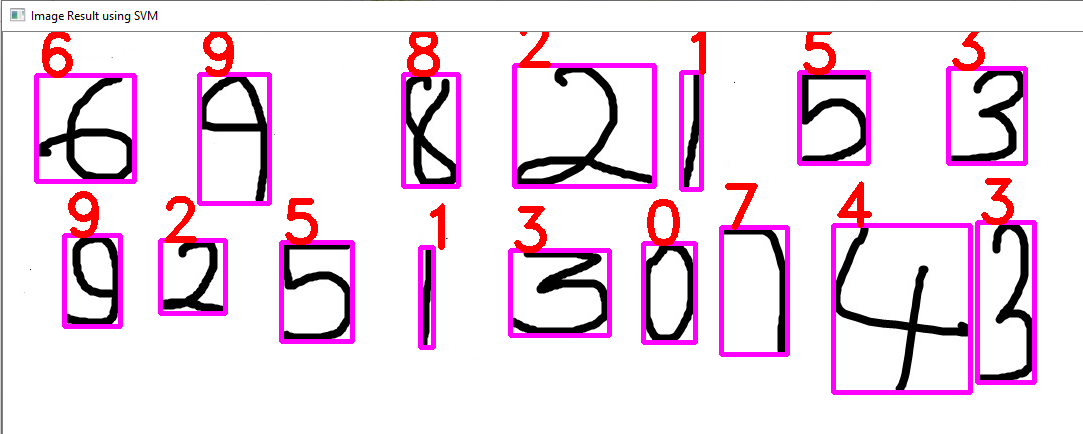 Image Result using SVM
6 9 8 2 1 5 3
6 9 8 2 1 5 3
9 2 5 1 3 0 7 4 3
9 2 5 1 3 0 7 4 3